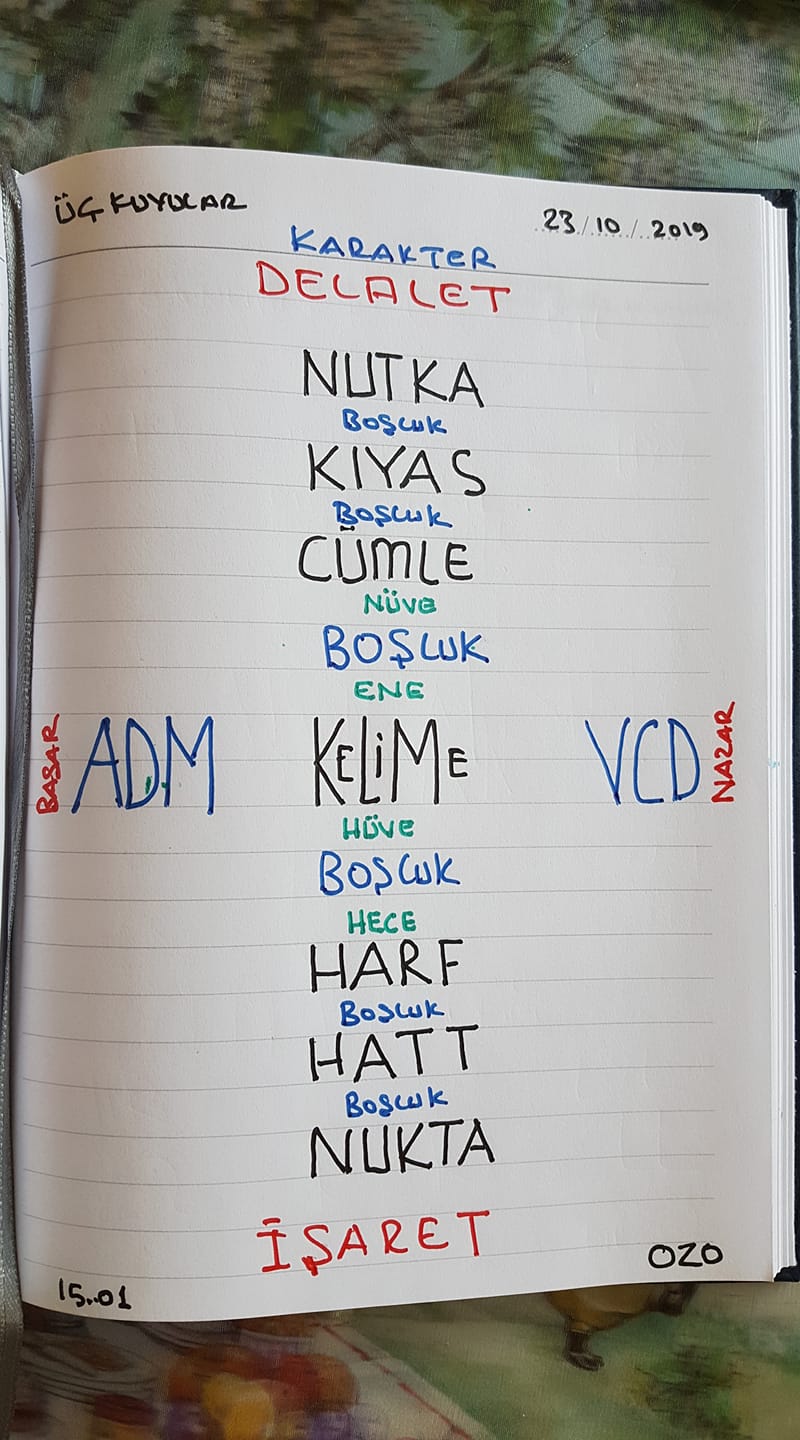 ÜÇ KUYULAR 23/10/2019
KARAKTER
DELALET
NUTKA
BOŞLUK
KIYAS
BOŞLUK
CÜMLE
NÜVE
BOŞLUK
ENE
BASAR ADM KELİME VCD NAZAR
HÜVE
BOŞLUK
HECE
HARF
BOŞLUK
HATT
BOŞLUK
NUKTA
İŞARET
OZO
15..01